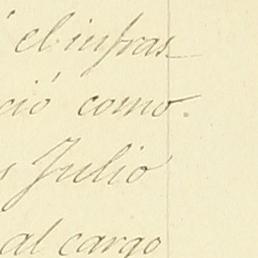 el infras
ció como.
Julio
al cargo